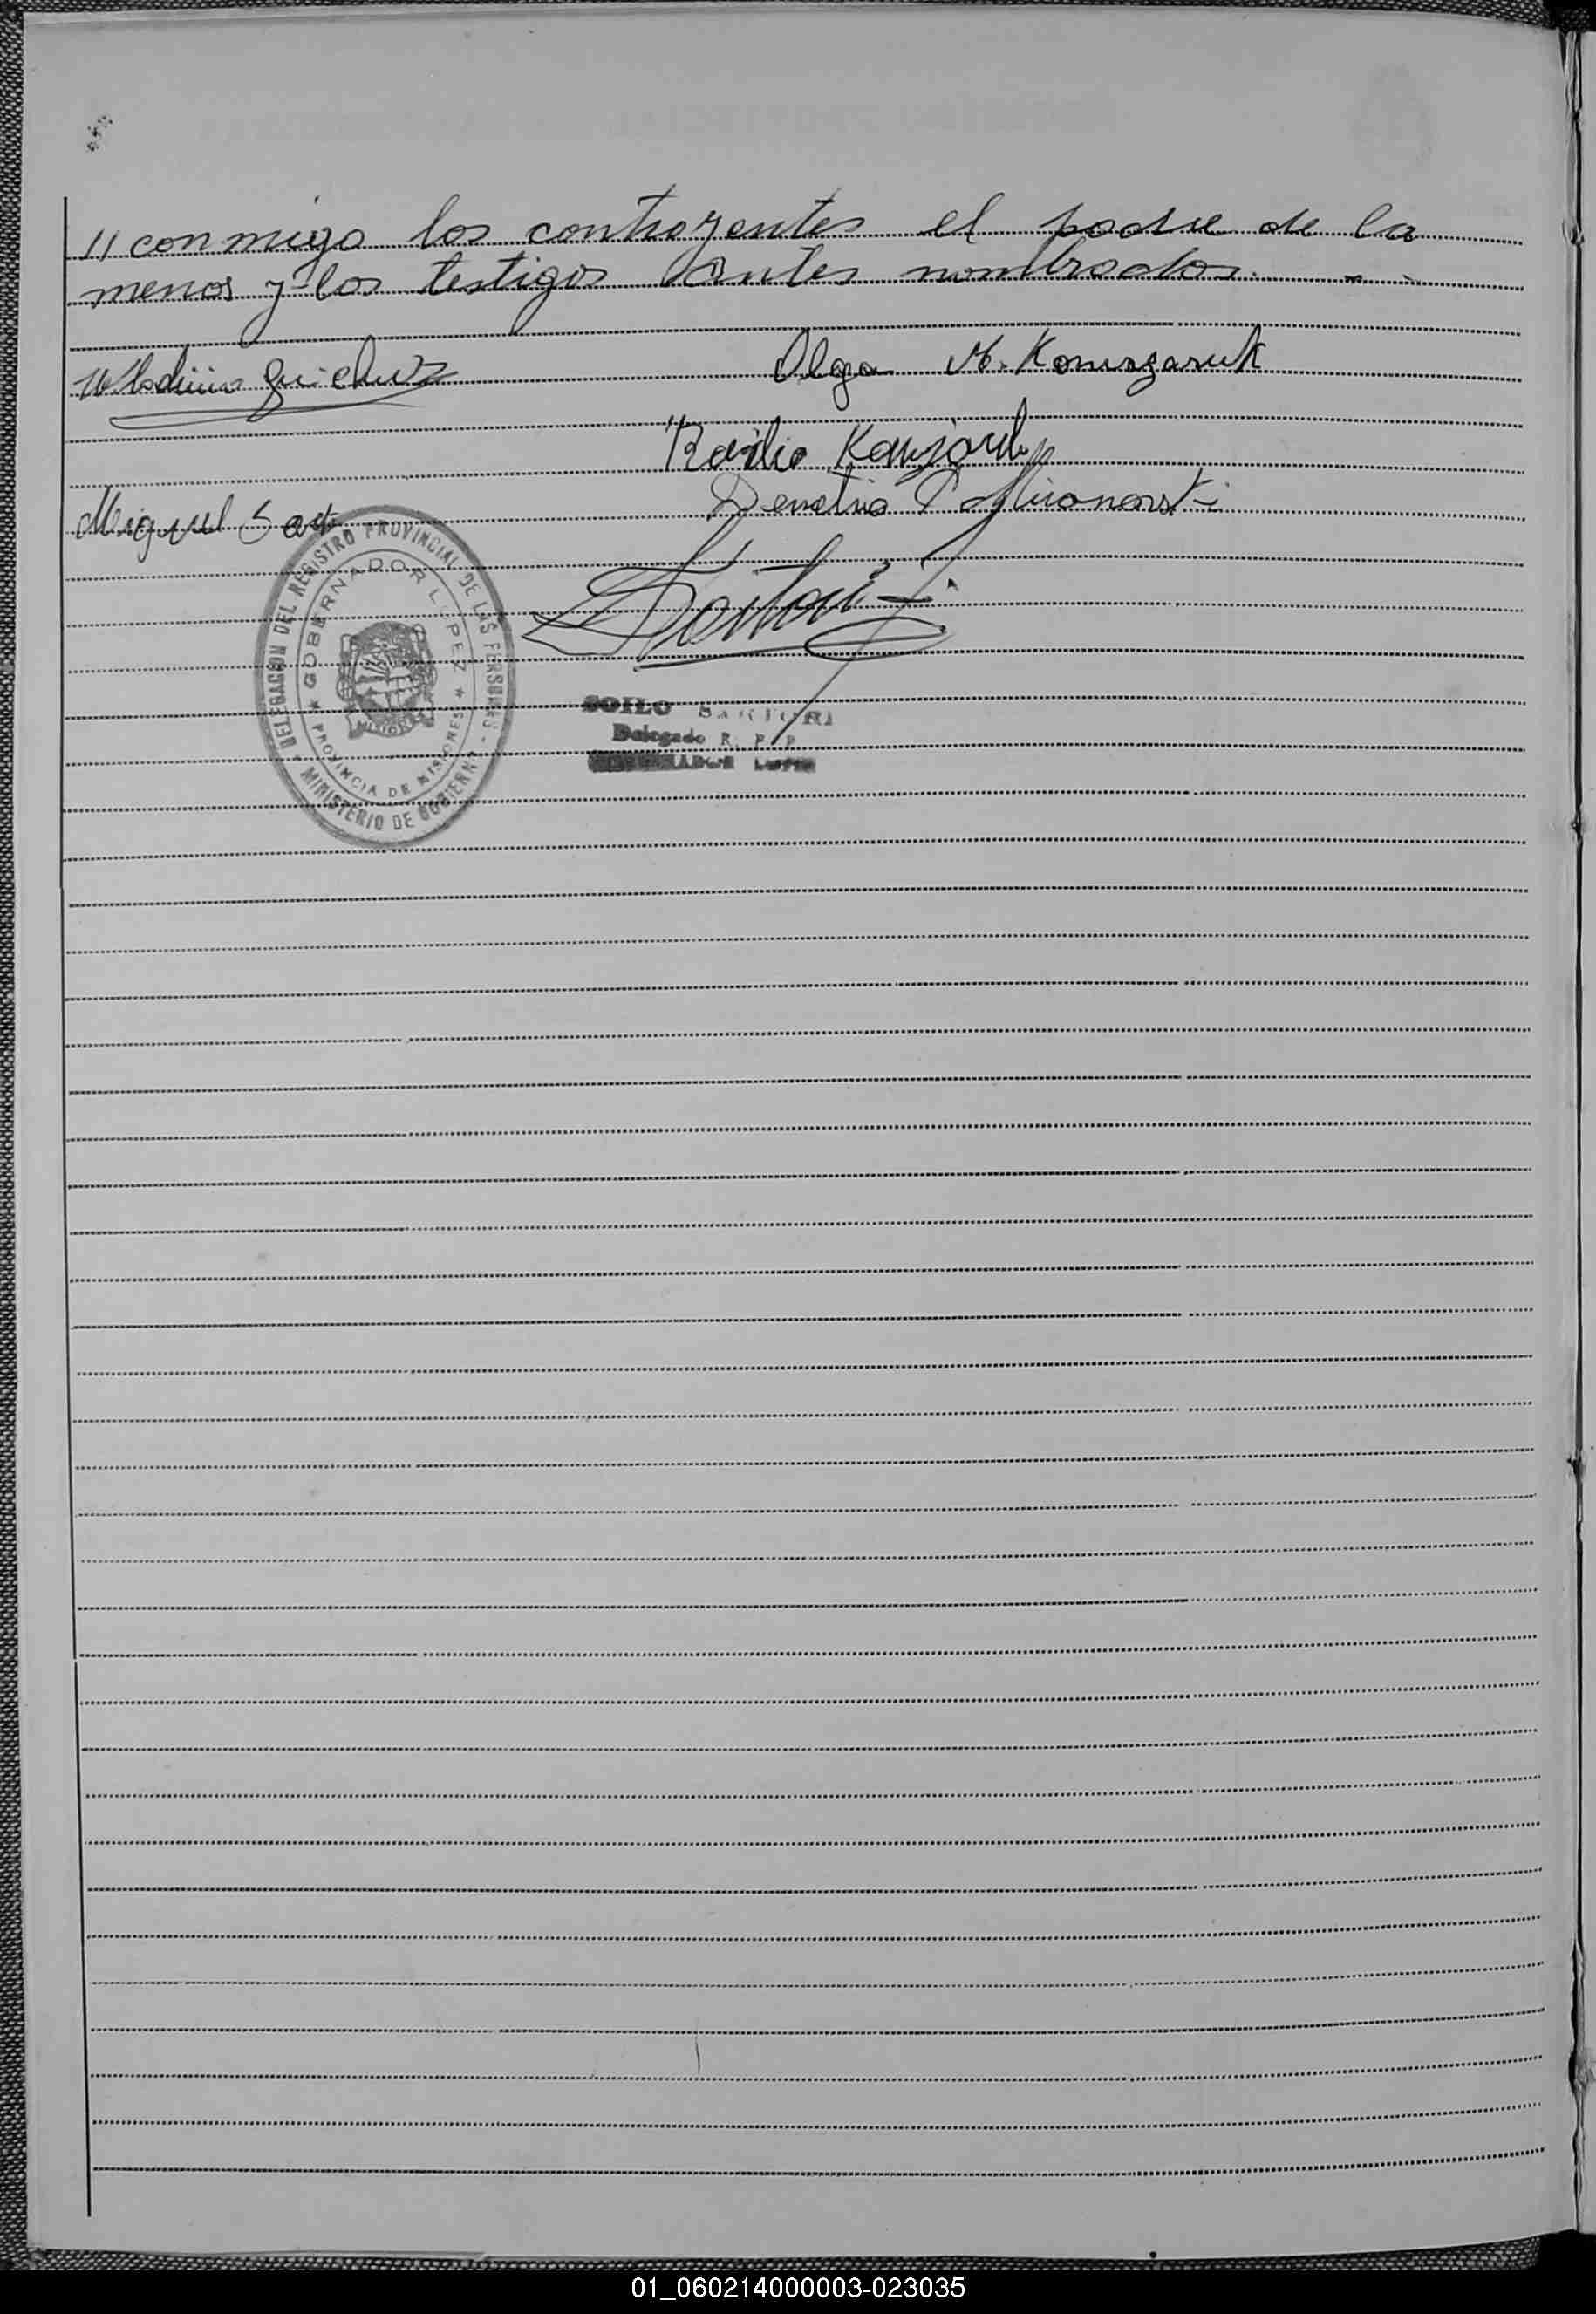 // conmigo los contrayentes el padre de la
menor y los testigos antes nombrados. - -
Olga M. Komazaruk
Basilio
Miguel
Demetrio
DELEGACION DEL REGISTRO PROVINCIAL DE LAS PERSONAS - MINISTERIO DE GOBIERNO
★ GOBERNADOR LOPEZ ★ PROVINCIA DE MISIONES
MISIONES
SOILO SARTORI
Delegado R. P. P.
GOBERNADOR LOPEZ
01_060214000003-023035